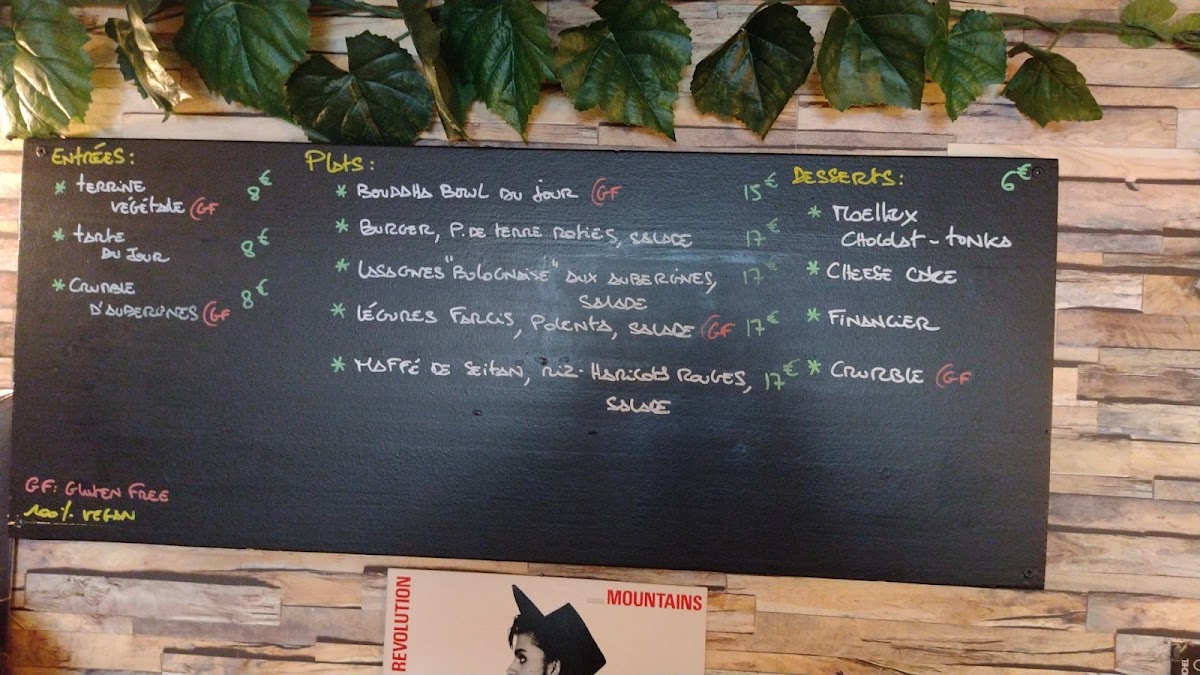 ENTRÉES:
* TERRINE
VÉGÉTALE GF 8€
* TARTE
DU JOUR 8€
* CRUMBLE
D'AUBERGINES GF 8€
PLATS:
* BOUDDHA BOWL DU JOUR GF 15€
* BURGER, P. DE TERRE ROTIES, SALADE 17€
* LASAGNES "BOLOGNAISE" AUX AUBERGINES, 17€
SALADE
* LÉGUMES FARCIS, POLENTA, SALADE GF 17€
* MAFFÉ DE SEITAN, RIZ-HARICOTS ROUGES, 17€
SALADE
DESSERTS: 6€
* MOELLEUX
CHOCOLAT-TONKA
* CHEESE CAKE
* FINANCIER
* CRUMBLE GF
GF: GLUTEN FREE
100% VEGAN
REVOLUTION
MOUNTAINS